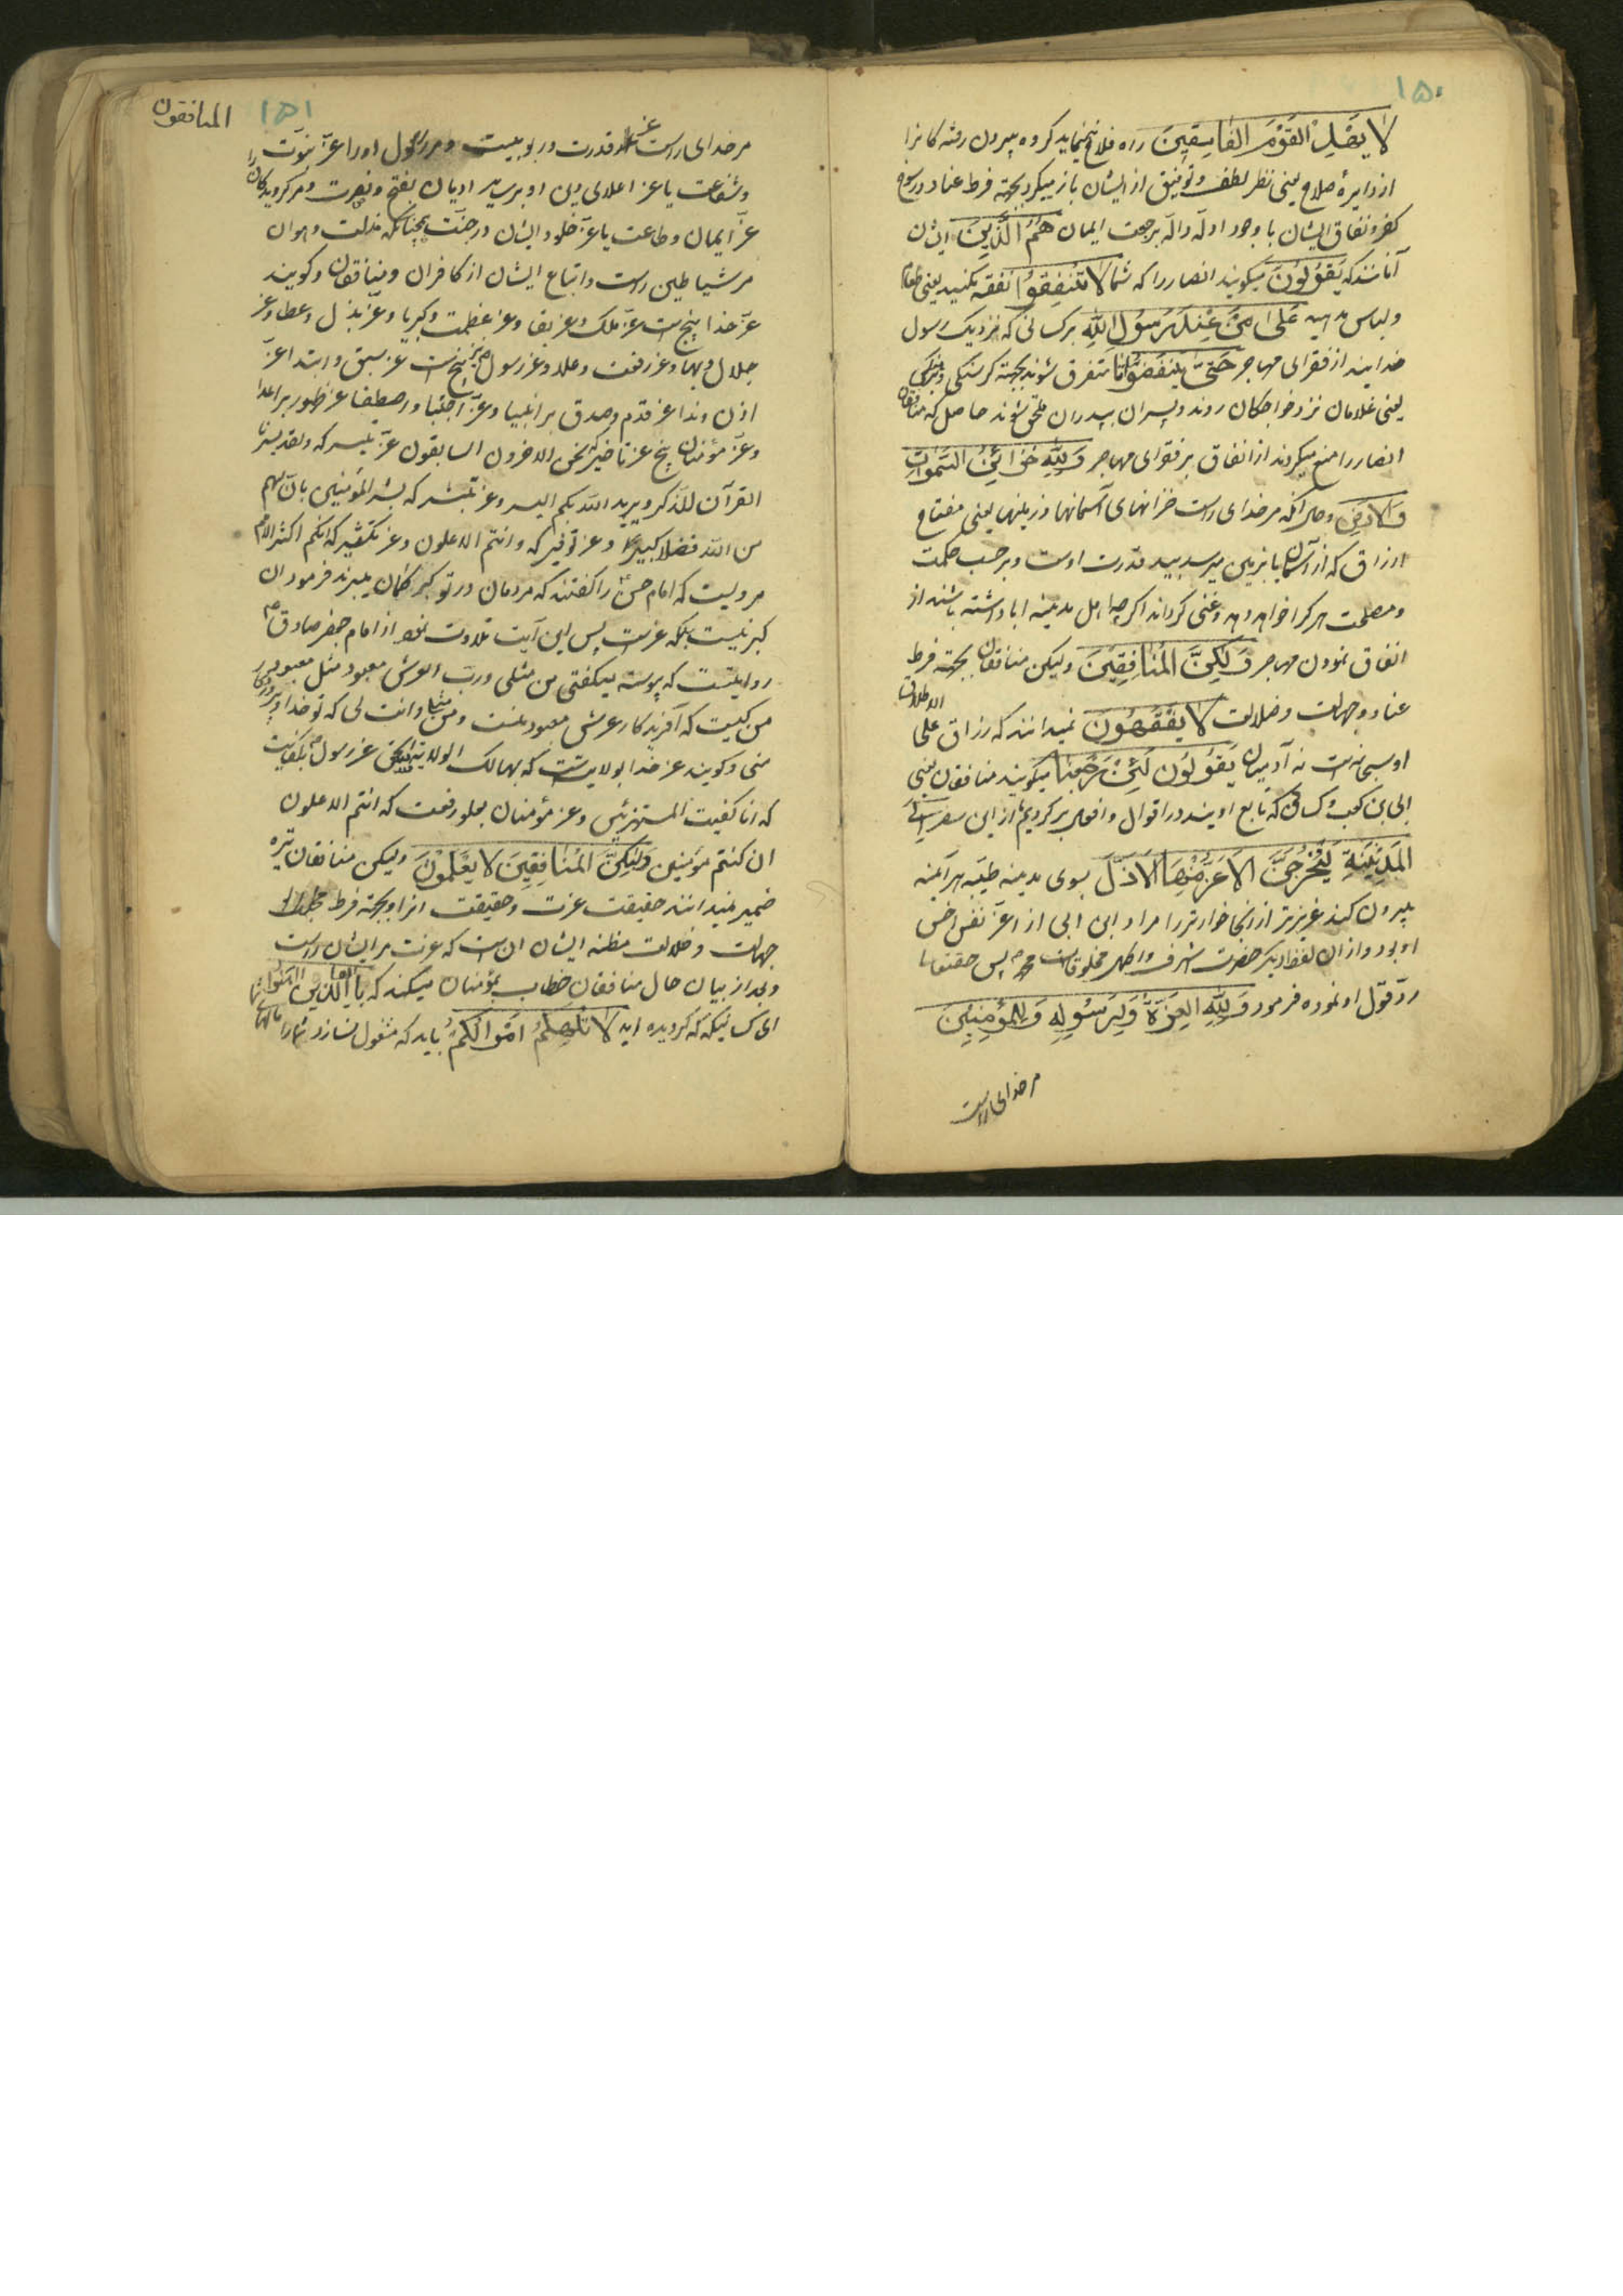 ۱۵۰
لا يَهْدِ القَوْمَ الفاسِقِينَ راه فلاح ننماید گروه بیرون رفته کانرا
از دایرهٔ صلاح یعنی نظر لطف و توفیق از ایشان باز میگیرد بجهته فرط عناد و رسوخ
کفر و نفاق ایشان با وجود ادلّه دالّه بر صحت ایمان هُمُ الَّذِينَ ایشان
آنانند که يَقُولُونَ میگویند انصار را که شما لا تُنْفِقُوا نفقه مکنید یعنی طعام
و لباس مدهید عَلى مَنْ عِنْدَ رَسُولِ اللهِ بر کسانی که نزدیک رسول
خدایند از فقرای مهاجر حَتّى يَنْفَضُّوا تا متفرق شوند بجهته گرسنگی و برهنگی
یعنی غلامان نزد خواجکان روند و پسران بپدران ملحق شوند حاصل که منافقان
انصار را منع میکردند از انفاق بر فقرای مهاجر وَلِلّهِ خَزائِنُ السَّمواتِ
وَالاَرْضِ و حال آنکه مر خدای راست خزانهای آسمانها و زمینها یعنی مفتاح
ارزاق که از آسمان بزمین میرسد بید قدرت اوست و بر حسب حکمت
و مصلحت هر کرا خواهد دهد و غنی گرداند اگر چه اهل مدینه ابا داشته باشند از
انفاق نمودن مهاجر وَلكِنَّ المُنافِقِينَ ولیکن منافقان بجهته فرط
عناد و جهالت و ضلالت لا يَفْقَهُونَ نمیدانند که رزاق علی
الاطلاق
او سبحانه است نه آدمیان يَقُولُونَ لَئِنْ رَجَعْنا میگویند منافقان یعنی
ابی بن کعب و کسانی که تابع اویند در اقوال و افعال بر گردیم از این سفر اِلَى
المَدِينَةِ لَيُخْرِجَنَّ الاَعَزُّ مِنْهَا الاَذَلَّ بسوی مدینه طیبه هر آینه
بیرون کند عزیزتر از آنجا خوارتر را مراد ابن ابی از اعزّ نفس اخس
او بود و از آن لفظ دیگر حضرت اشرف و اطهر مخلوقات محمد ص پس حقتعالی
ردّ قول او نموده فرمود وَلِلّهِ العِزَّةُ وَلِرَسُولِهِ وَلِلْمُؤْمِنِينَ
مر خدای راست
المنافقون
۱۵۱
مر خدای راست عز قدرت و ربوبیت و مر رسول او را عزّ نبوّت
و شفاعت یا عز اعلای دین او بر سایر ادیان بفتح و نصرت و مر گرویدکان را
عزّ ایمان و طاعت یا عزّ خلود ایشان در جنّت همچنانکه مذلت و هوان
مر شیاطین راست و اتباع ایشان از کافران و منافقان و گویند
عزّ خدا پنج است عزّ ملک و عز بقا و عز عظمت و کبریا و عزّ بذل و عطا و عز
جلال و بها و عز رفعت و علا و عز رسول نیز پنج است عز سبق و ابتدا عزّ
اذن و ندا عز قدم و صدق بر انبیا و عزّ اجتبا و اصطفا عز ظهور بر اعدا
و عزّ مؤمنان پنج عز تاخیر نحن الاخرون السابقون عزّ تیسیر که و لقد یسرنا
القرآن للذکر و یرید الله بکم الیسر و عز تبشیر که بشر المؤمنین بانّ لهم
من الله فضلا کبیرا و عز توقیر که و انتم الاعلون و عز تکثیر که انکم اکثر الامم
مرویست که امام حسن ع را گفتند که مردمان در تو کبر گمان میبرند فرمود ان
کبر نیست بلکه عزّ است پس این آیت تلاوت نمود از امام جعفر صادق ع
روایتست که پیوسته میگفتی من مثلی و ربّ العرش معبود مثل معبود
من کیست که آفریدکار عرش معبود منست و من مثلی و انت لی که تو خدا و پروردکار
منی و گویند عز خدا بولایتست که هنالک الولایة لله الحق عز رسول ص بکفایت
که انا کفیناک المستهزئین و عز مؤمنان بعلو رفعت که انتم الاعلون
ان کنتم مؤمنین وَلكِنَّ المُنافِقِينَ لا يَعْلَمُونَ ولیکن منافقان تیره
ضمیر نمیدانند حقیقت عزت و حقیقت آنرا و بجهته فرط
جهالت و ضلالت مظنه ایشان آن است که عزت مر ایشان راست
و بعد از بیان حال منافقان خطاب بمؤمنان میکند که يا اَيُّهَا الَّذِينَ آمَنُوا
ای کسانیکه گرویده اید لا تُلْهِكُمْ اَمْوالُكُمْ باید که مشغول نسازد شما را مالهای شما